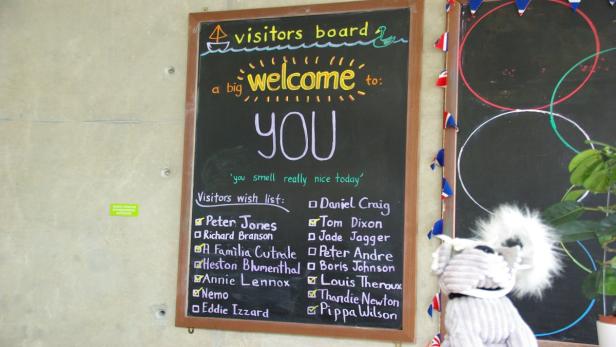 visitors board
a big welcome to:
YOU
'you smell really nice today'
Visitors wish list:
Peter Jones
Richard Branson
A Familia Cutrale
Heston Blumenthal
Annie Lennox
Nemo
Eddie Izzard
Daniel Craig
Tom Dixon
Jade Jagger
Peter Andre
Boris Johnson
Louis Theroux
Thandie Newton
Pippa Wilson